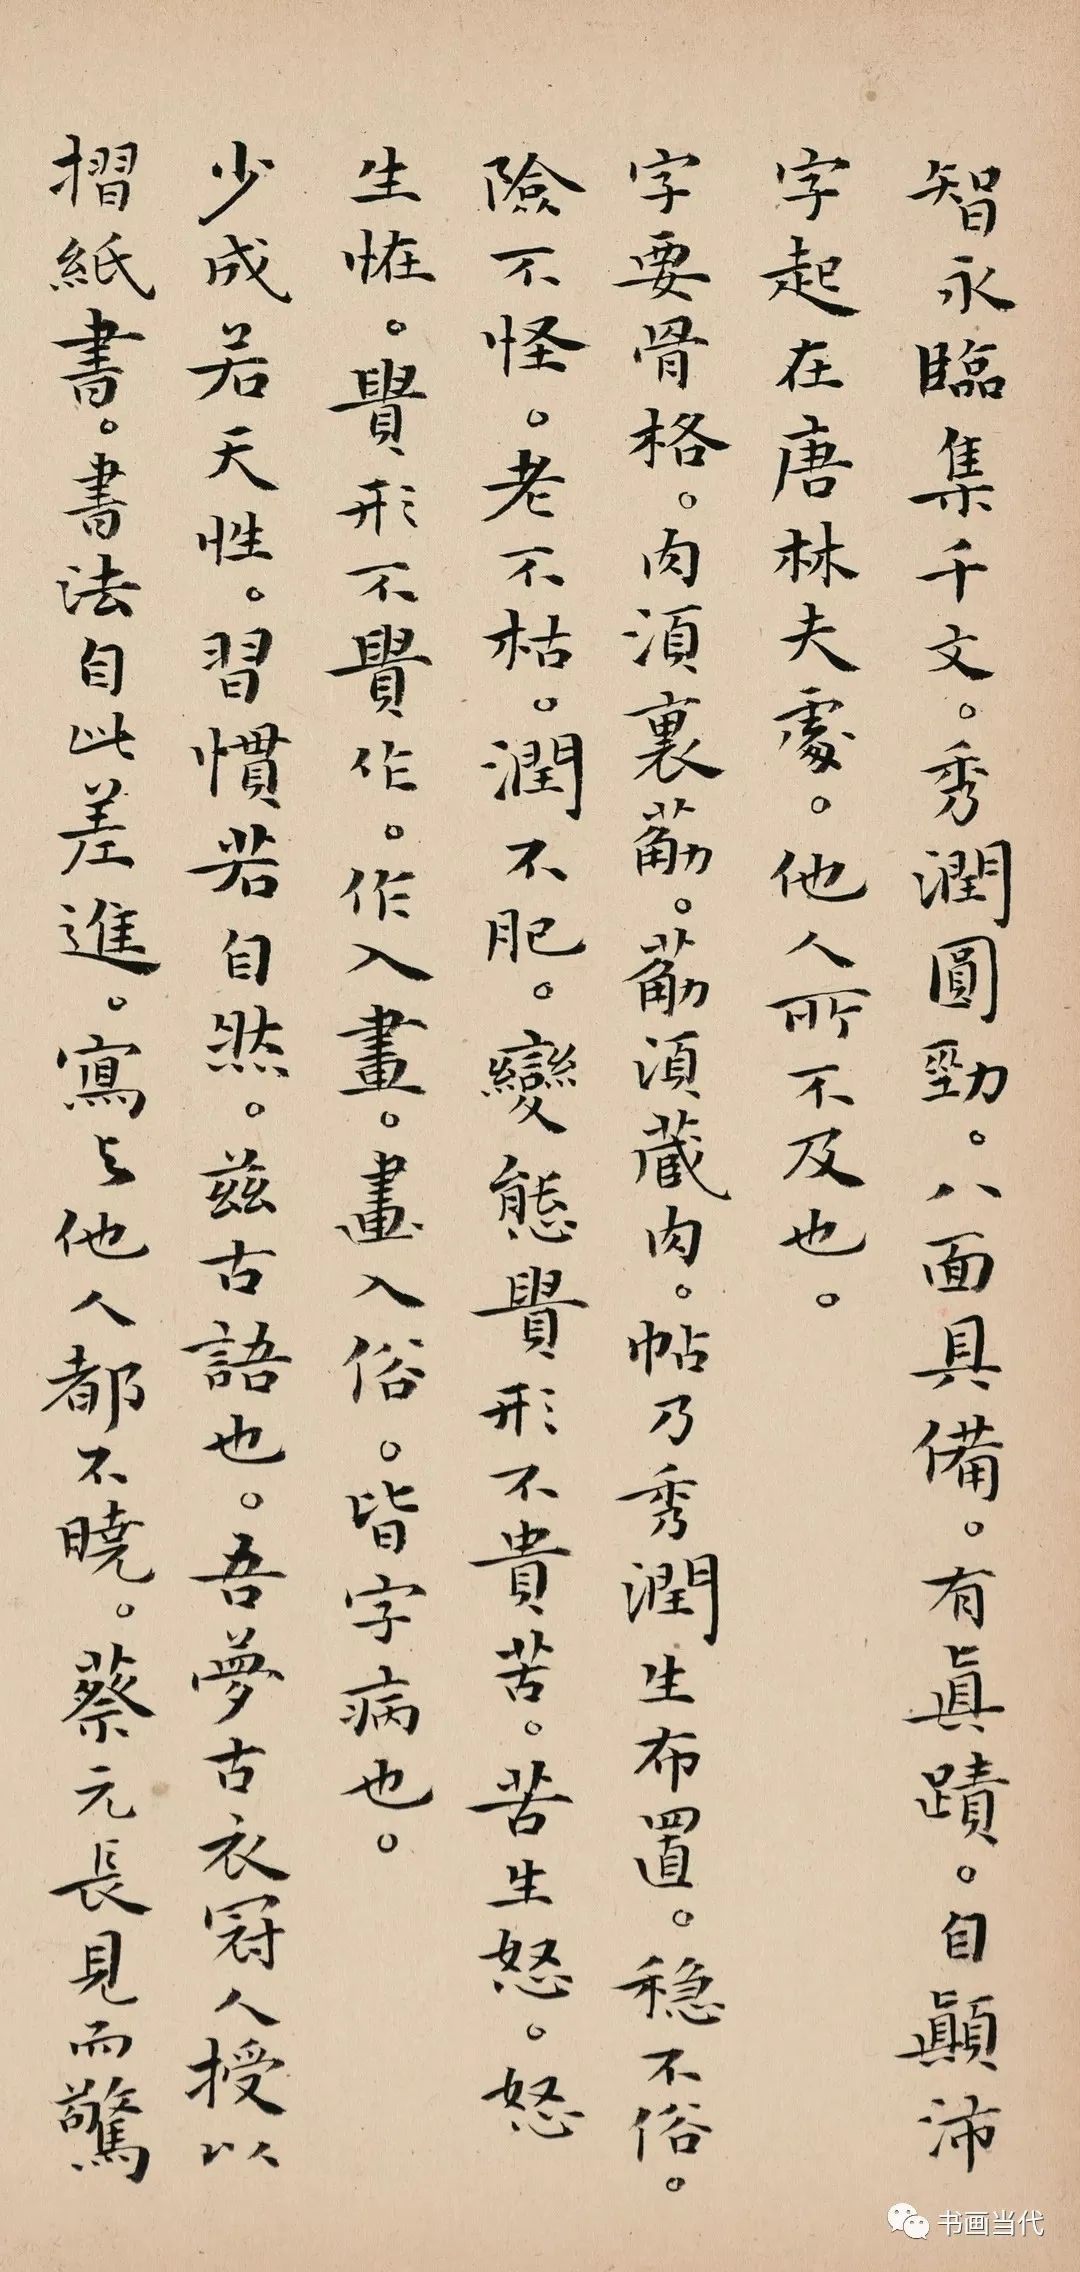 智永臨集千文。秀潤圓勁。八面具備。有眞蹟。自顚沛
字起在唐林夫處。他人所不及也。
字要骨格。肉須裏荕。荕須蔵肉。帖乃秀潤生布置。稳不俗。
險不怪。老不枯。潤不肥。變態貴形不貴苦。苦生怒。怒
生恠。貴形不貴作。作入畫。畫入俗。皆字病也。
少成若天性。習慣若自然。茲古語也。吾夢古衣冠人授以
摺紙書。書法自此差進。寫与他人都不曉。蔡元長見而驚
书画当代